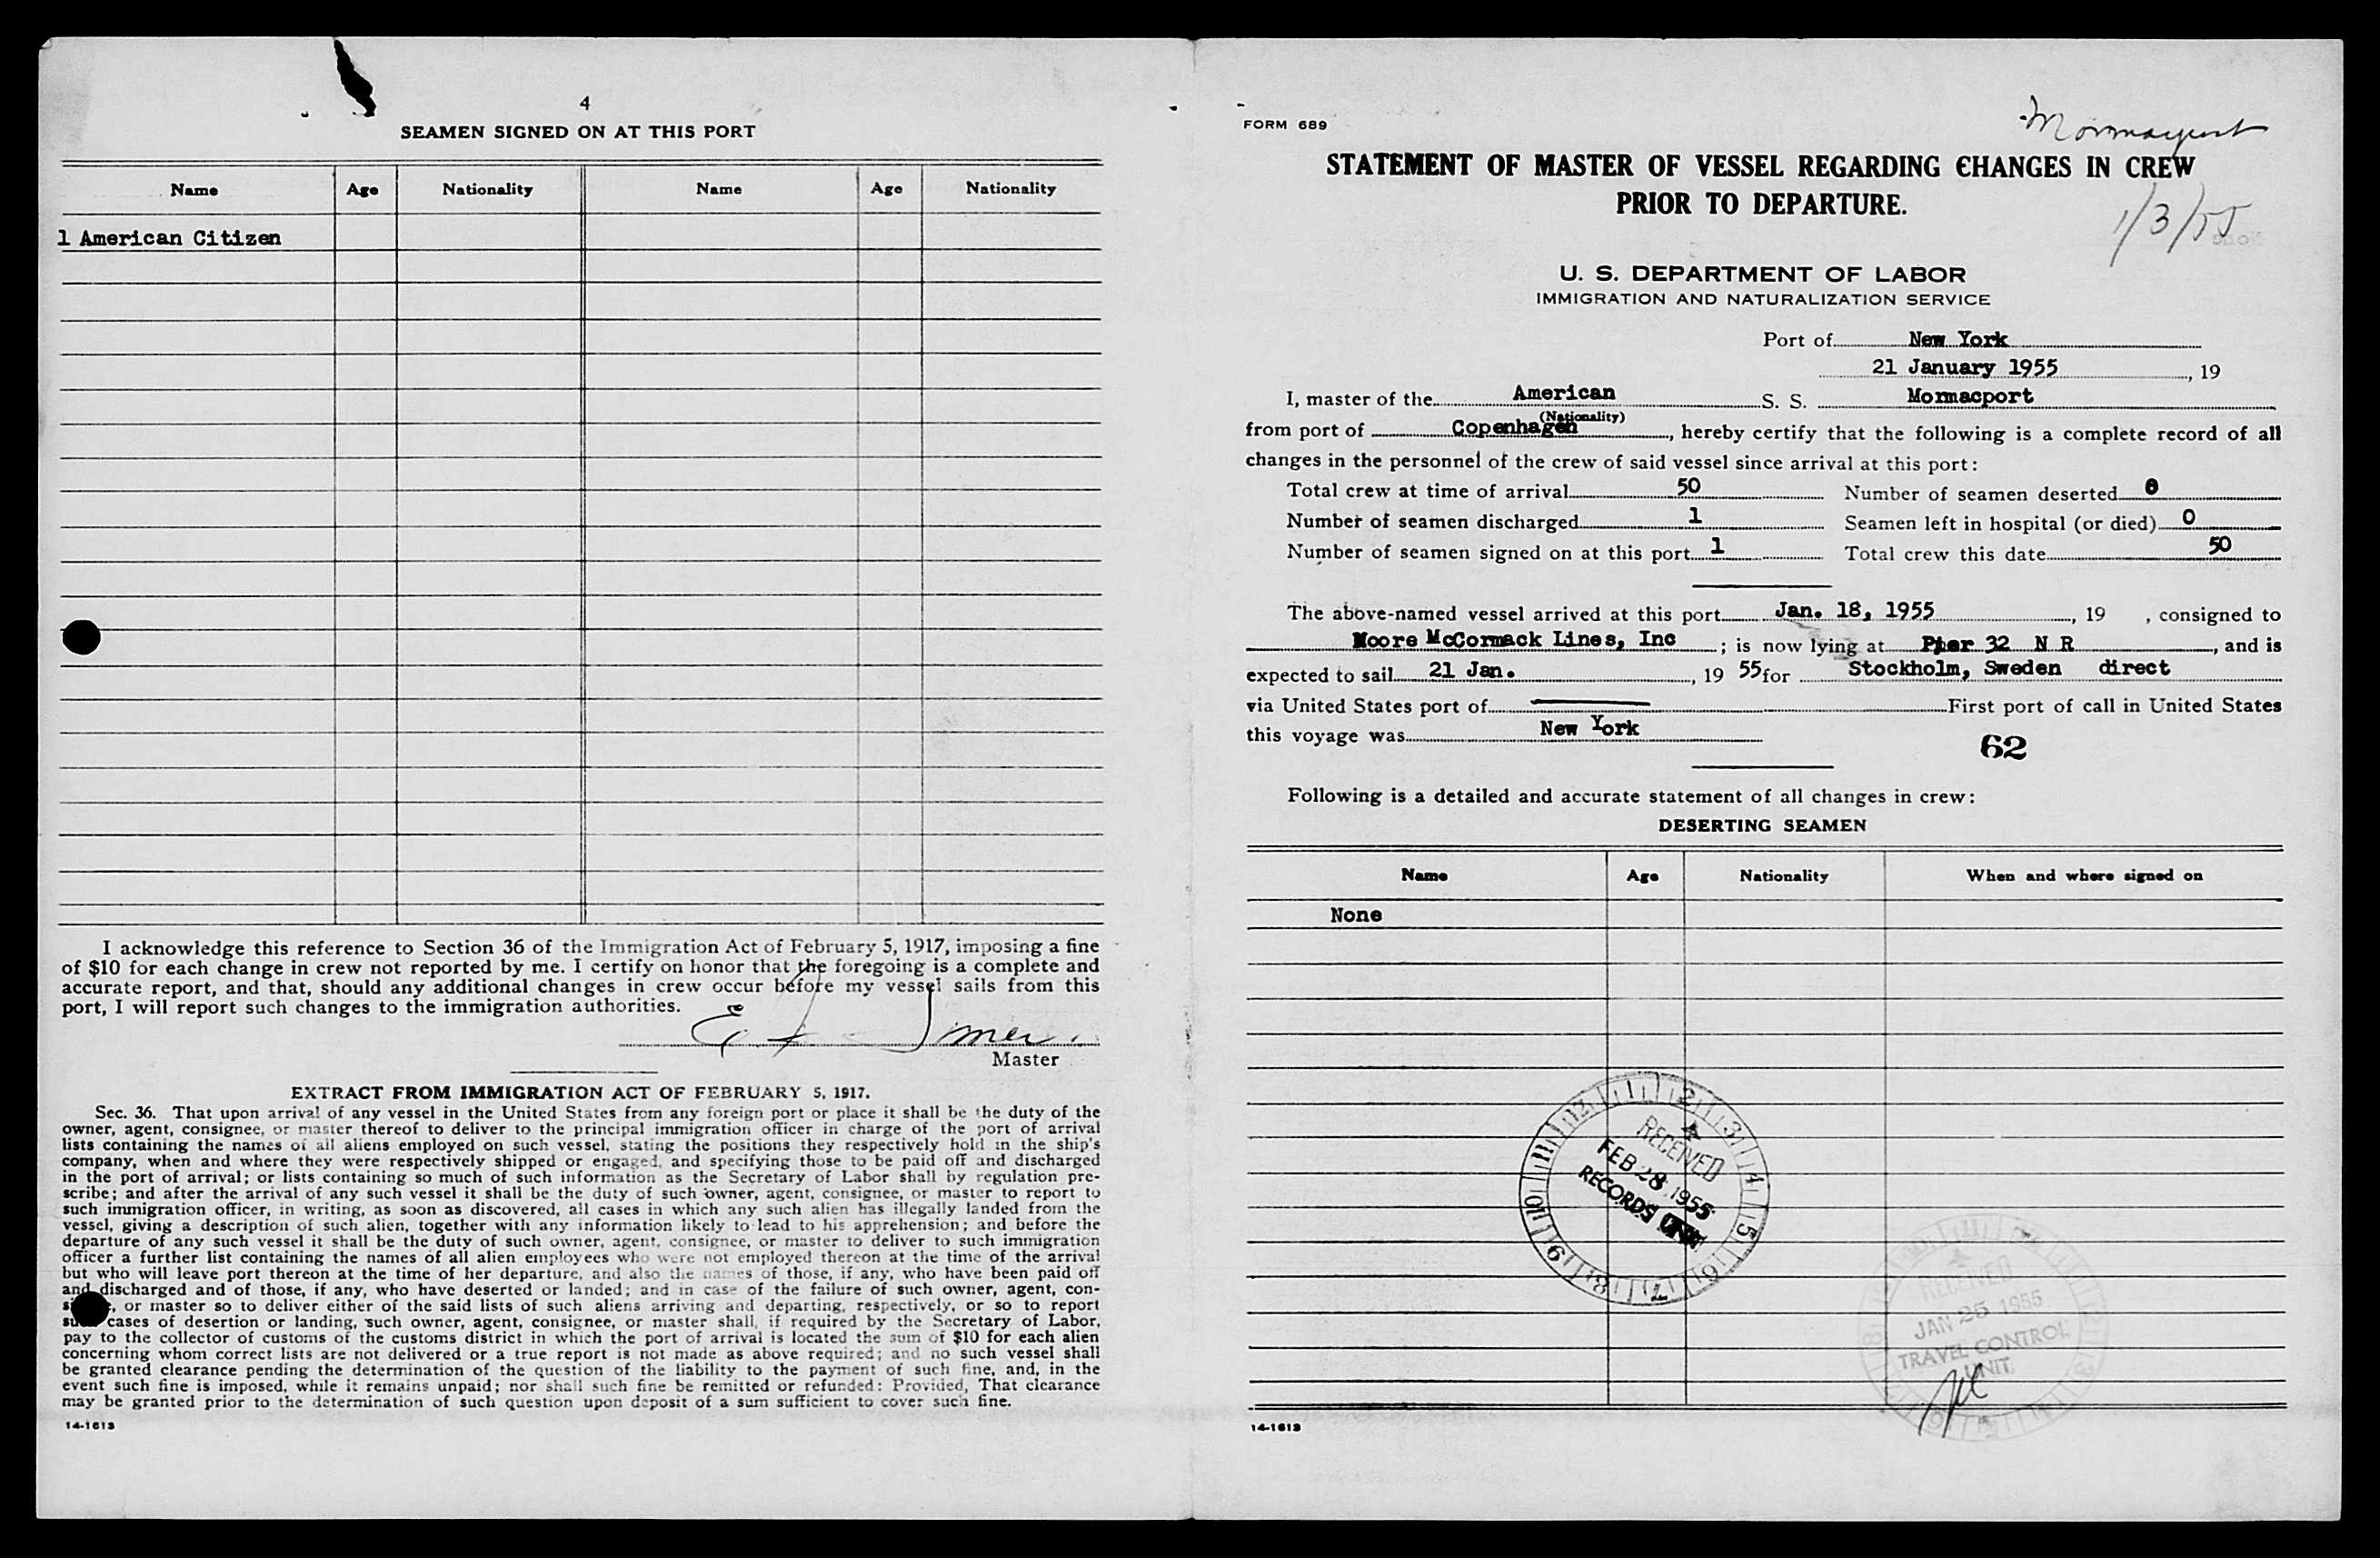 4
SEAMEN SIGNED ON AT THIS PORT
Name Age Nationality Name Age Nationality
1 American Citizen
I acknowledge this reference to Section 36 of the Immigration Act of February 5, 1917, imposing a fine
of $10 for each change in crew not reported by me. I certify on honor that the foregoing is a complete and
accurate report, and that, should any additional changes in crew occur before my vessel sails from this
port, I will report such changes to the immigration authorities.
Master
EXTRACT FROM IMMIGRATION ACT OF FEBRUARY 5, 1917.
Sec. 36. That upon arrival of any vessel in the United States from any foreign port or place it shall be the duty of the
owner, agent, consignee, or master thereof to deliver to the principal immigration officer in charge of the port of arrival
lists containing the names of all aliens employed on such vessel, stating the positions they respectively hold in the ship's
company, when and where they were respectively shipped or engaged, and specifying those to be paid off and discharged
in the port of arrival; or lists containing so much of such information as the Secretary of Labor shall by regulation pre-
scribe; and after the arrival of any such vessel it shall be the duty of such owner, agent, consignee, or master to report to
such immigration officer, in writing, as soon as discovered, all cases in which any such alien has illegally landed from the
vessel, giving a description of such alien, together with any information likely to lead to his apprehension; and before the
departure of any such vessel it shall be the duty of such owner, agent, consignee, or master to deliver to such immigration
officer a further list containing the names of all alien employees who were not employed thereon at the time of the arrival
but who will leave port thereon at the time of her departure, and also the names of those, if any, who have been paid off
and discharged and of those, if any, who have deserted or landed; and in case of the failure of such owner, agent, con-
, or master so to deliver either of the said lists of such aliens arriving and departing, respectively, or so to report
cases of desertion or landing, such owner, agent, consignee, or master shall, if required by the Secretary of Labor,
pay to the collector of customs of the customs district in which the port of arrival is located the sum of $10 for each alien
concerning whom correct lists are not delivered or a true report is not made as above required; and no such vessel shall
be granted clearance pending the determination of the question of the liability to the payment of such fine, and, in the
event such fine is imposed, while it remains unpaid; nor shall such fine be remitted or refunded: Provided, That clearance
may be granted prior to the determination of such question upon deposit of a sum sufficient to cover such fine.
14-1613
FORM 689
Mormacport
STATEMENT OF MASTER OF VESSEL REGARDING CHANGES IN CREW
PRIOR TO DEPARTURE.
1/3/55
U. S. DEPARTMENT OF LABOR
IMMIGRATION AND NATURALIZATION SERVICE
Port of New York
21 January 1955, 19
I, master of the American S. S. Mormacport
(Nationality)
from port of Copenhagen, hereby certify that the following is a complete record of all
changes in the personnel of the crew of said vessel since arrival at this port:
Total crew at time of arrival 50 Number of seamen deserted 0
Number of seamen discharged 1 Seamen left in hospital (or died) 0
Number of seamen signed on at this port 1 Total crew this date 50
The above-named vessel arrived at this port Jan. 18, 1955, 19 , consigned to
Moore McCormack Lines, Inc ; is now lying at Pier 32 N R, and is
expected to sail 21 Jan., 19 55 for Stockholm, Sweden direct
via United States port of First port of call in United States
this voyage was New York
62
Following is a detailed and accurate statement of all changes in crew:
DESERTING SEAMEN
Name Age Nationality When and where signed on
None
12 1 2 3 4 5 6 7 8 9 10 11
RECEIVED
FEB 28 1955
RECORDS UNIT
RECEIVED
JAN 25 1955
TRAVEL CONTROL
UNIT
14-1613